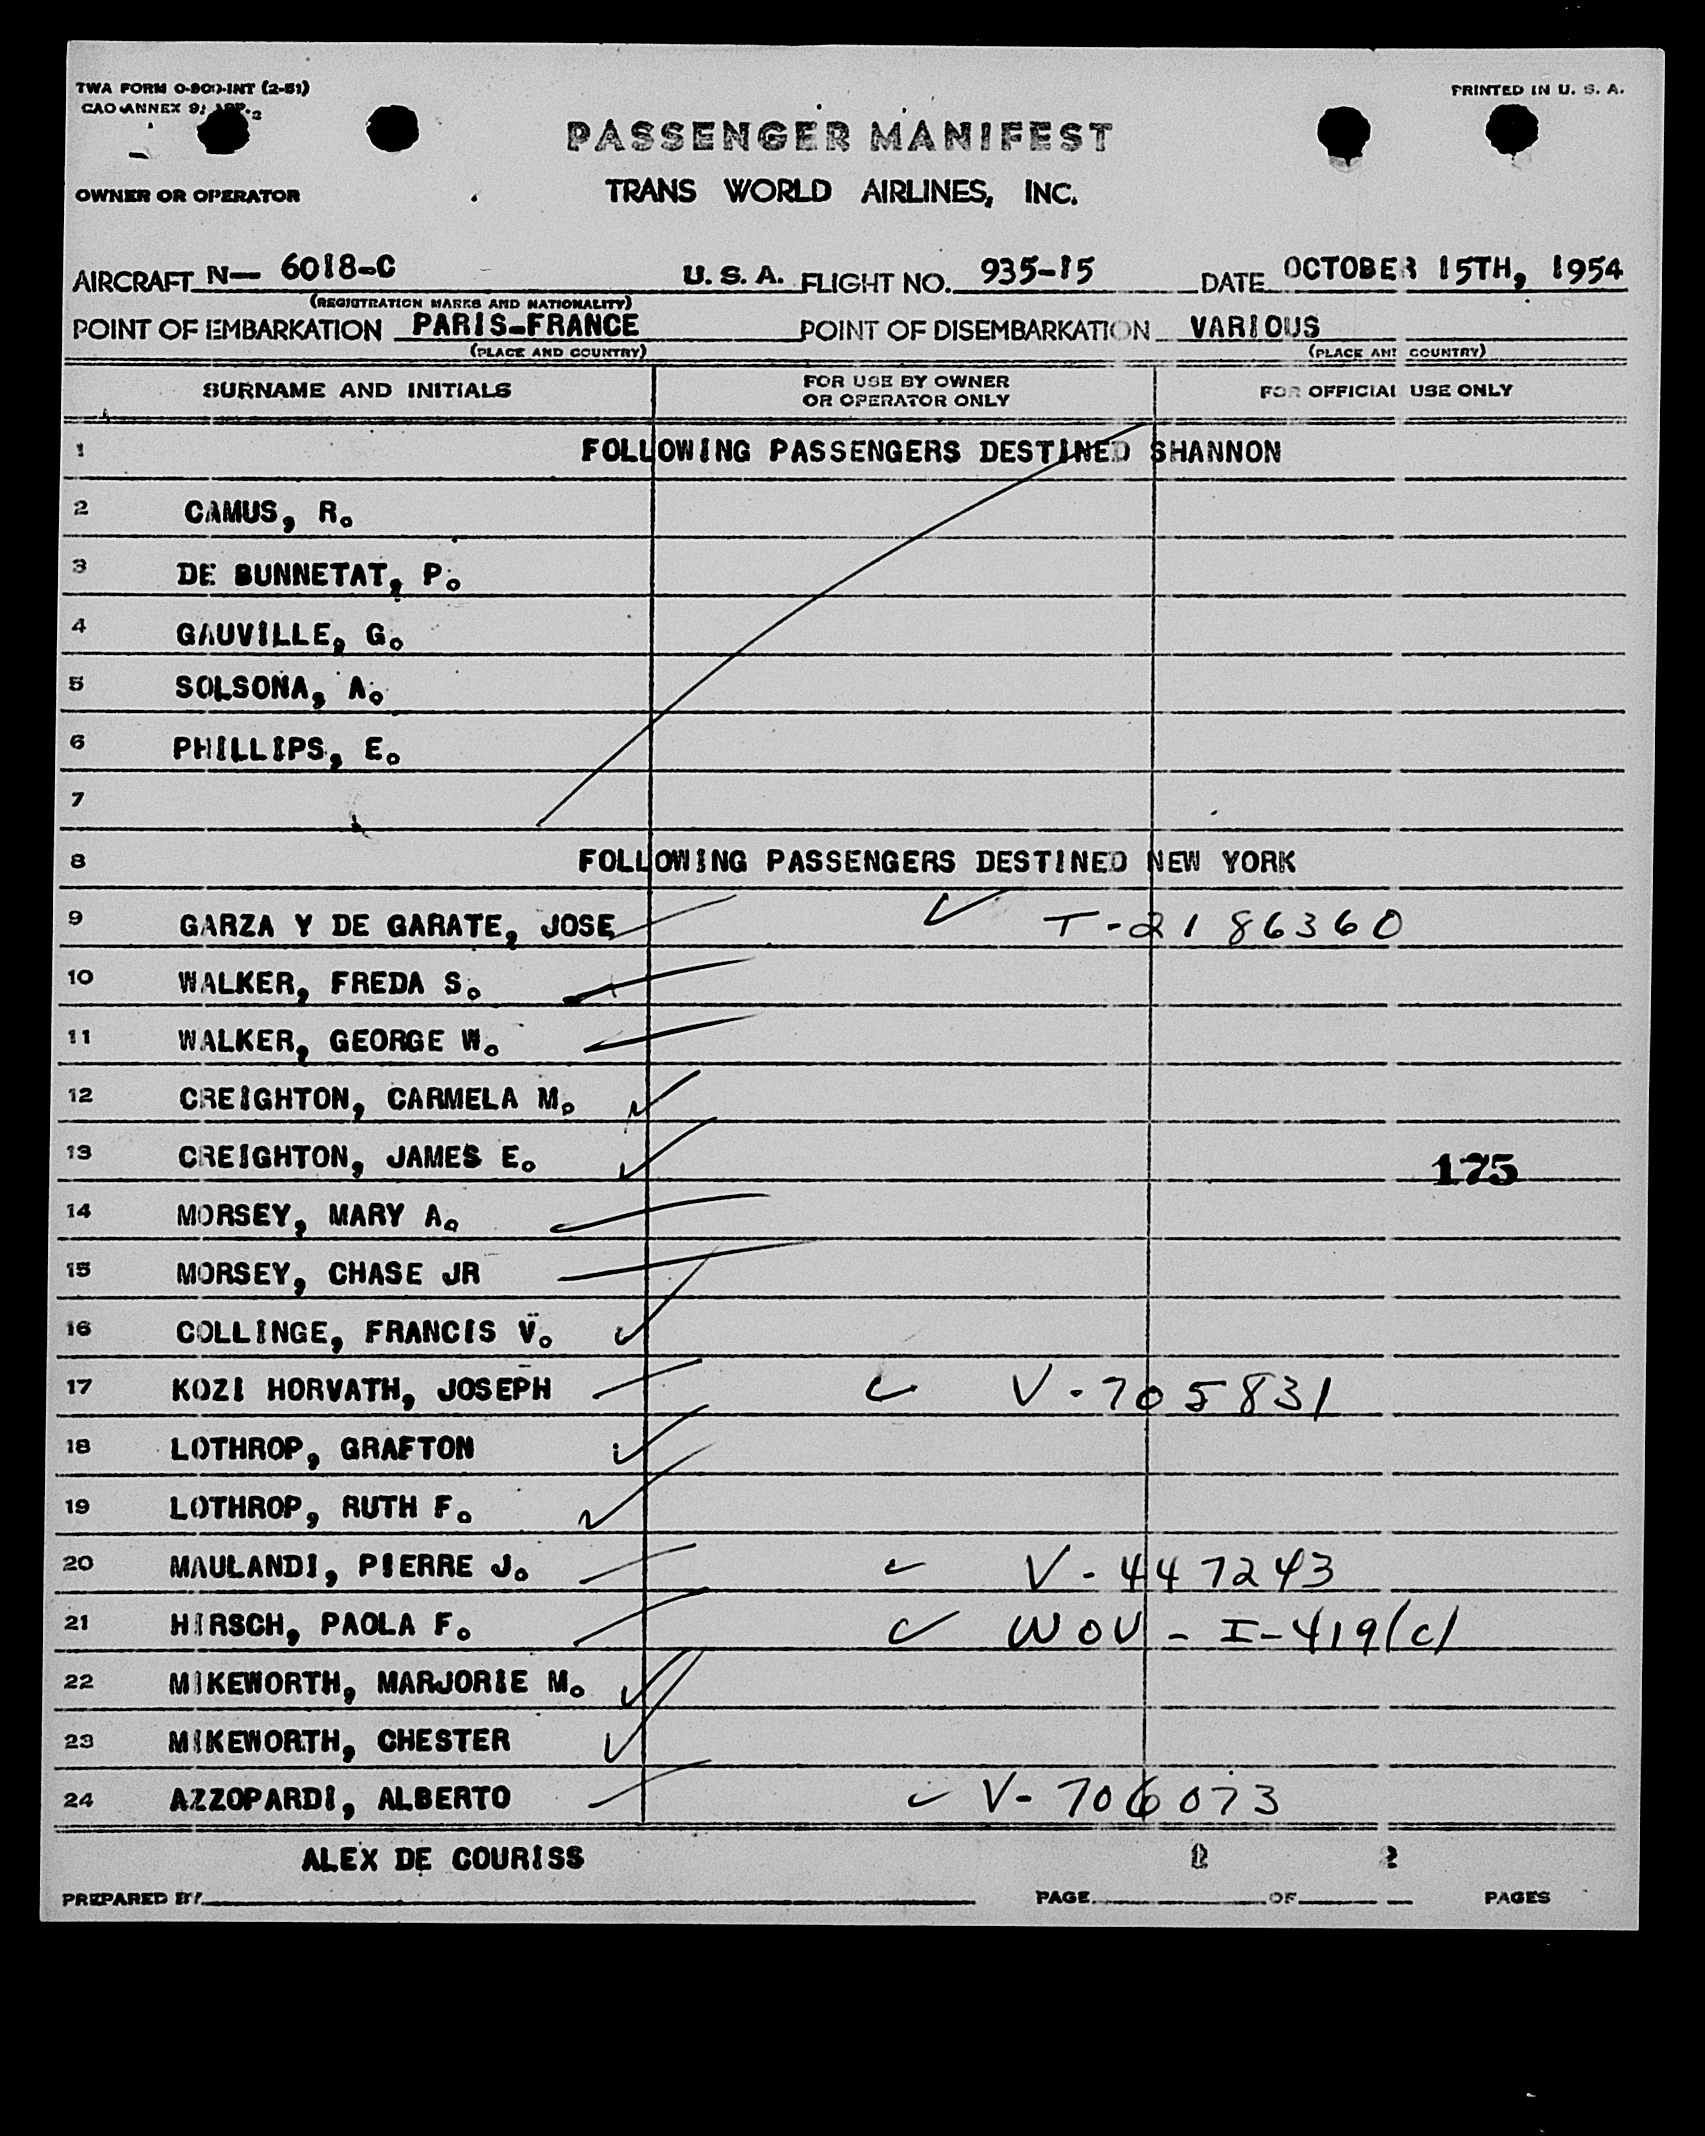 TWA FORM O-900-INT (2-51)
PRINTED IN U. S. A.
CAO ANNEX 9, APP. 2
PASSENGER MANIFEST
OWNER OR OPERATOR
TRANS WORLD AIRLINES, INC.
AIRCRAFT N- 6018-C U. S. A. FLIGHT NO. 935-15 DATE OCTOBER 15TH, 1954
(REGISTRATION MARKS AND NATIONALITY)
POINT OF EMBARKATION PARIS-FRANCE POINT OF DISEMBARKATION VARIOUS
(PLACE AND COUNTRY) (PLACE AND COUNTRY)
SURNAME AND INITIALS FOR USE BY OWNER OR OPERATOR ONLY FOR OFFICIAL USE ONLY
1 FOLLOWING PASSENGERS DESTINED SHANNON
2 CAMUS, R.
3 DE BUNNETAT, P.
4 GAUVILLE, G.
5 SOLSONA, A.
6 PHILLIPS, E.
7
8 FOLLOWING PASSENGERS DESTINED NEW YORK
9 GARZA Y DE GARATE, JOSE T-2186360
10 WALKER, FREDA S.
11 WALKER, GEORGE W.
12 CREIGHTON, CARMELA M.
13 CREIGHTON, JAMES E. 175
14 MORSEY, MARY A.
15 MORSEY, CHASE JR
16 COLLINGE, FRANCIS V.
17 KOZI HORVATH, JOSEPH V-705831
18 LOTHROP, GRAFTON
19 LOTHROP, RUTH F.
20 MAULANDI, PIERRE J. V-447243
21 HIRSCH, PAOLA F. WOV - I-419(c)
22 MIKEWORTH, MARJORIE M.
23 MIKEWORTH, CHESTER
24 AZZOPARDI, ALBERTO V-706073
ALEX DE COURISS 2
PREPARED BY PAGE OF PAGES